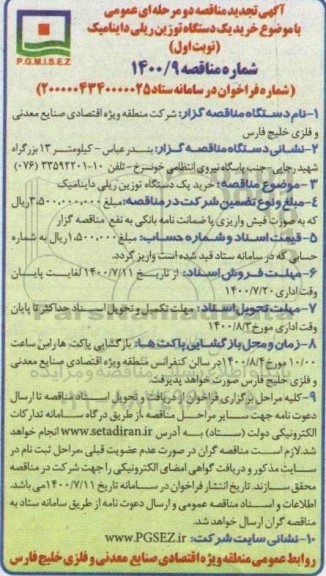 آگهی تجدید مناقصه دو مرحله ای عمومی
با موضوع خرید یک دستگاه توزین ریلی داینامیک
(نوبت اول)
P.G.M.I.S.E.Z
شماره مناقصه ۱۴۰۰/۹
(شماره فراخوان در سامانه ستاد ۲۰۰۰۰۰۴۳۴۰۰۰۰۰۲۵)
۱-نام دستگاه مناقصه گزار: شرکت منطقه ویژه اقتصادی صنایع معدنی
و فلزی خلیج فارس
۲-نشانی دستگاه مناقصه گزار: بندرعباس - کیلومتر ۱۳ بزرگراه
شهید رجایی- جنب پاسگاه نیروی انتظامی خونسرخ- تلفن ۱۰-۳۳۵۹۲۲۰۱ (۰۷۶)
۳- موضوع مناقصه: خرید یک دستگاه توزین ریلی داینامیک
۴-مبلغ و نوع تضمین شرکت در مناقصه: مبلغ ۳،۵۰۰،۰۰۰،۰۰۰ ریال
که به صورت فیش واریزی یا ضمانت نامه بانکی به نفع مناقصه گزار
۵- قیمت اسناد و شماره حساب: مبلغ ۱،۵۰۰،۰۰۰ ریال به شماره
حسابی که در سامانه ستاد قید شده است واریز گردد.
۶-مهلت فروش اسناد: از تاریخ ۱۴۰۰/۷/۱۱ لغایت پایان
وقت اداری ۱۴۰۰/۷/۲۰
۷-مهلت تحویل اسناد: مهلت تکمیل و تحویل اسناد حداکثر تا پایان
وقت اداری مورخ ۱۴۰۰/۸/۳
۸-زمان و محل بازگشایی پاکت ها: بازگشایی پاکت ها راس ساعت
۱۰/۰۰ مورخ ۱۴۰۰/۸/۴ در سالن کنفرانس منطقه ویژه اقتصادی صنایع معدنی
و فلزی خلیج فارس صورت خواهد پذیرفت.
۹-کلیه مراحل برگزاری فراخوان از دریافت و تحویل اسناد مناقصه تا ارسال
دعوت نامه جهت سایر مراحل مناقصه از طریق درگاه سامانه تدارکات
الکترونیکی دولت (ستاد) به آدرس www.setadiran.ir انجام خواهد
شد. لازم است مناقصه گران در صورت عدم عضویت قبلی، مراحل ثبت نام در
سایت مذکور و دریافت گواهی امضای الکترونیکی را جهت شرکت در مناقصه
محقق سازند. تاریخ انتشار فراخوان در سامانه تاریخ ۱۴۰۰/۷/۱۱ می باشد.
اطلاعات و اسناد مناقصه عمومی و ارسال دعوت نامه از طریق سامانه ستاد به
مناقصه گران ارسال خواهد شد.
۱۰-نشانی سایت شرکت: www.PGSEZ.ir
روابط عمومی منطقه ویژه اقتصادی صنایع معدنی و فلزی خلیج فارس